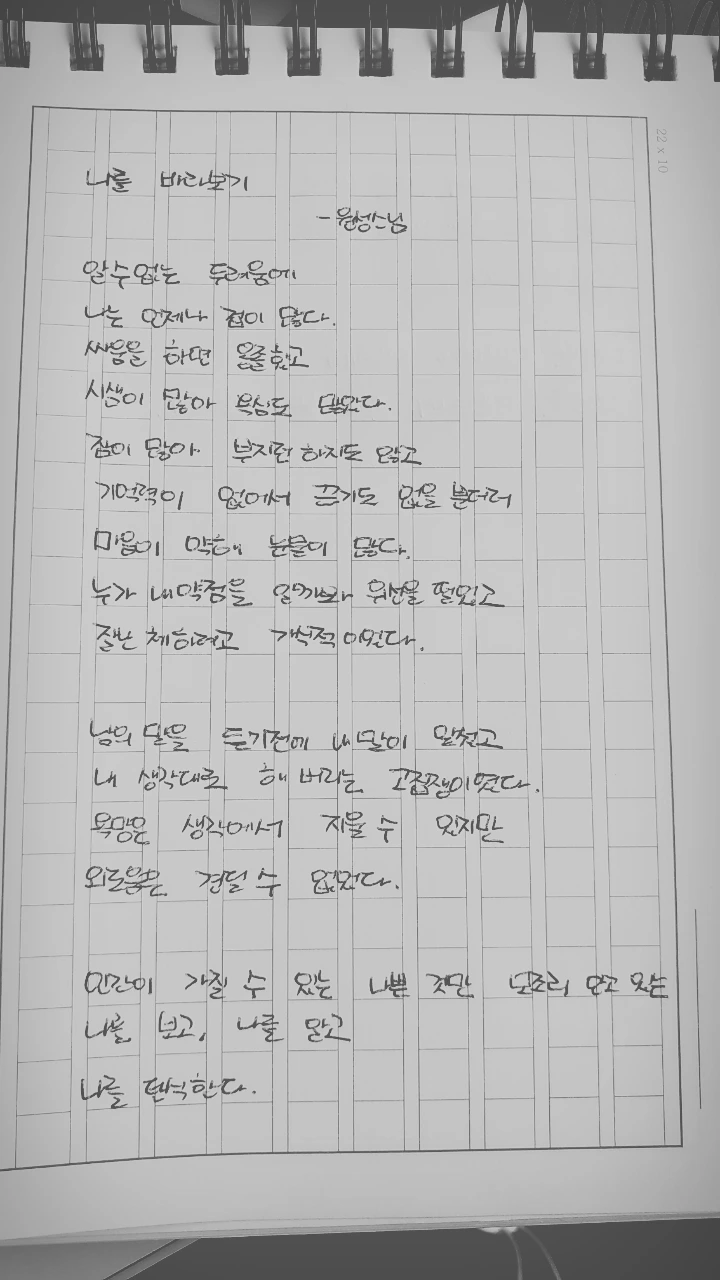 나를 바라보기
- 원성스님
알수없는 두려움에
나는 언제나 겁이 많다.
싸움을 하면 올했고
시샘이 많아 욕심도 많았다.
잠이 많아 부지런 하지도 않고
기억력이 없어서 끈기도 없을 뿐더러
마음이 약해 눈물이 많다.
누가 내약점을 알까봐 위선을 떨었고
잘난 체하려고 개성적이었다.
남의 말을 듣기전에 내말이 앞섰고
내 생각대로 해 버리는 고집쟁이였다.
욕망은 생각에서 지울 수 있지만
외로움은 견딜 수 없었다.
인간이 가질 수 있는 나쁜 것만 모조리 안고 있는
나를 보고, 나를 알고
나를 탄식한다.
22 x 10